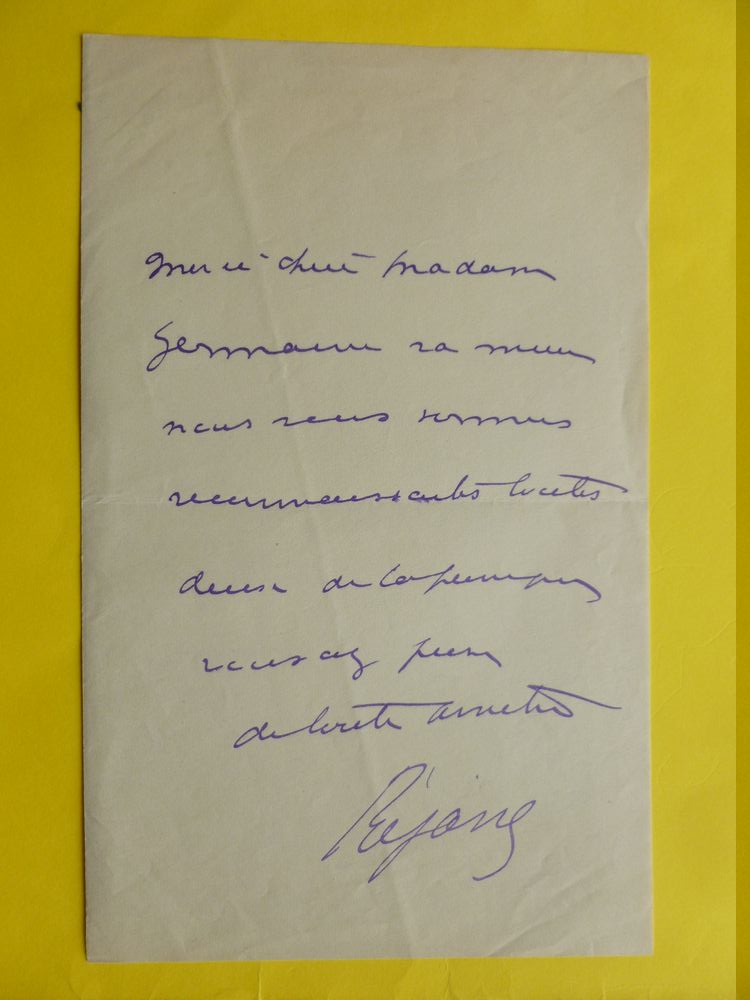 Merci chère Madame
Germaine va mieux
nous vous sommes
reconnaissantes toutes
deux de la peine que
vous avez prise
de toute amitié
Réjane